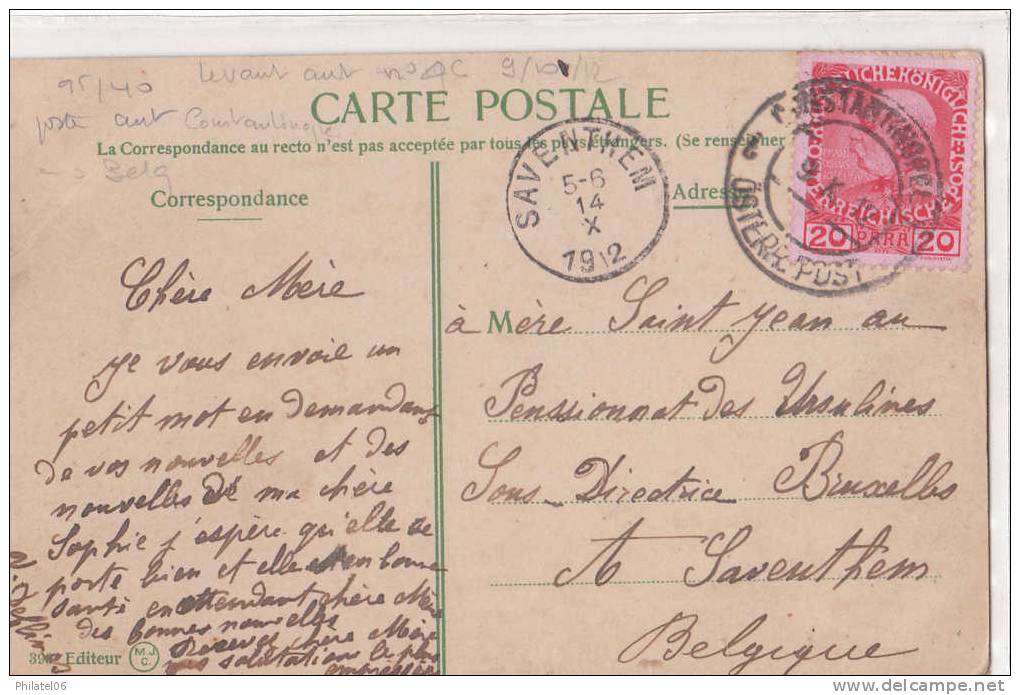 95/40
Levant aut n° 9/10/12
poste aut Constantinople
-> Belg
CARTE POSTALE
La Correspondance au recto n'est pas acceptée par tous les pays étrangers. (Se renseigner
Correspondance
Adresse
SAVENTHEM
5-6
14
X
1912
CONSTANTINOPEL
9 X 12
ÖSTERR. POST
20 PARA 20
Chère Mère
Je vous envoie un
petit mot en demandant
de vos nouvelles et des
nouvelles de ma chère
Sophie j'espère qu'elle se
porte bien et elle est en bonne
santé en attendant chère Mère
des bonnes nouvelles
Recevez chère Mère
mes salutations le plus
empressées
à Mère Saint Jean au
Penssionnat des Ursulines
Sous-Directrice Bruxelles
A Saventhem
Belgique
Editeur M.J.C.
Philatel06
www.delcampe.net